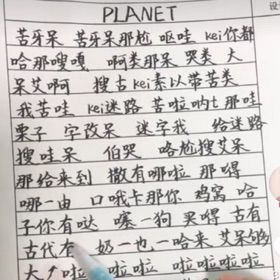 PLANET
设
苦牙呆 苦牙呆那尬 呕哇 kei你都
哈那嗖嘎 啊类那呆 哭类 大
呆艾啊 搜古kei素以带苦类
我苦哇 kei迷路 苦啦呐t 那哇
栗子 字改呆 迷字我 给迷路
搜哇呆 伯哭 咯尬搜艾呆
那给来到 撒有哪啦 那嘚
哪一由 口哦卡那你 鸡窝 哈
子你有哒 噻一狗 买嘚 古有
古代有 扔一也 一哈来 艾呆
大 啦啦 啦啦 啦啦啦啦